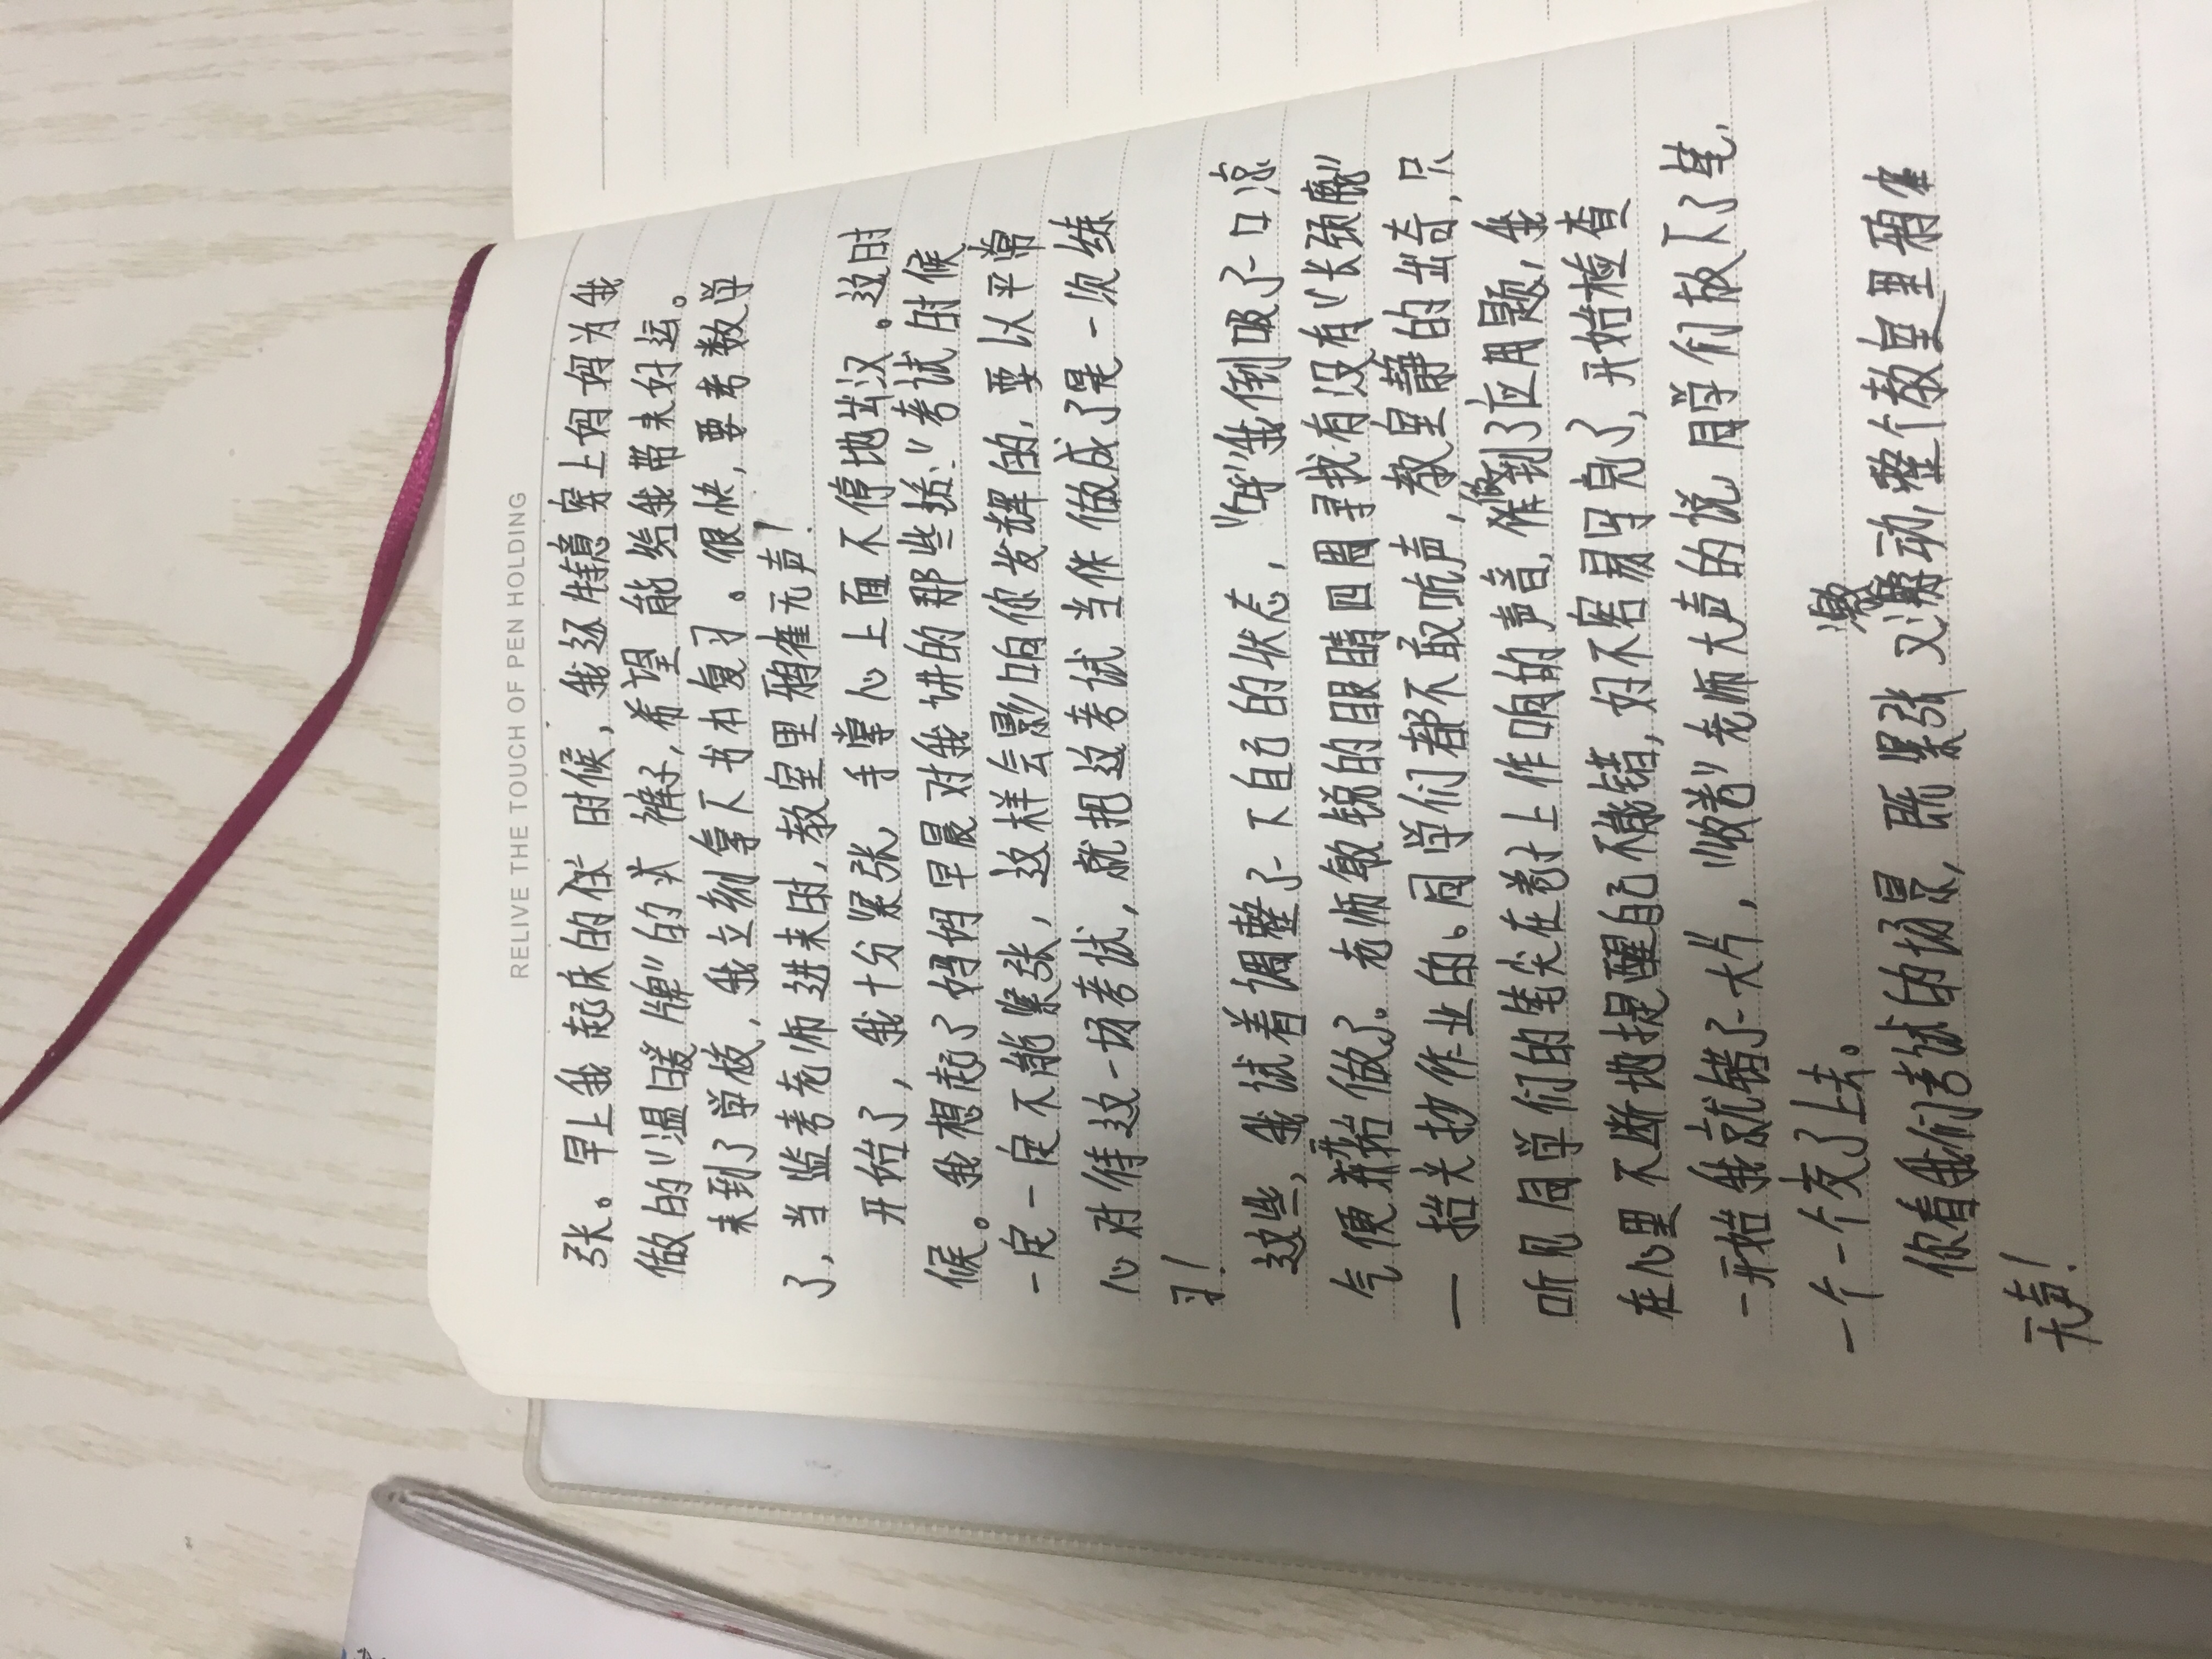 RELIVE THE TOUCH OF PEN HOLDING
张。早上我起床的时候，我还特意穿上妈妈为我
做的“温暖牌”的裤子，希望能给我带来好运。
来到了学校，我立刻拿下书本复习。很快，要考数学
了，当监考老师进来时，教室里鸦雀无声！
开始了，我十分紧张，手掌心上面不停地出汉。这时
候。我想起了妈妈早晨对我讲的那些括：“考试时候
一定一定不能紧张，这样会影响你发辉的，要以平常
心对待这一场考试，就把这考试当作做成了是一次练
习！
这些，我试着调整了一下自己的状态，“呼”我倒吸了一口凉
气便开始做了。老师敏锐的眼睛四周寻找有没有“长颈鹿”
一抬头抄作业的。同学们都不敢吭声，教室静的出奇，只
听见同学们的笔尖在卷上作响的声音，做到了应用题，我
在心里不断地提醒自己不能错，好不容易写完了，开始检查
一开始我就错了一大片，“收卷”老师大声的说，同学们放下了笔，
一个一个交了上去。
你看我们考试的场景，既紧张又激动，整个教室里鸦雀
无声！